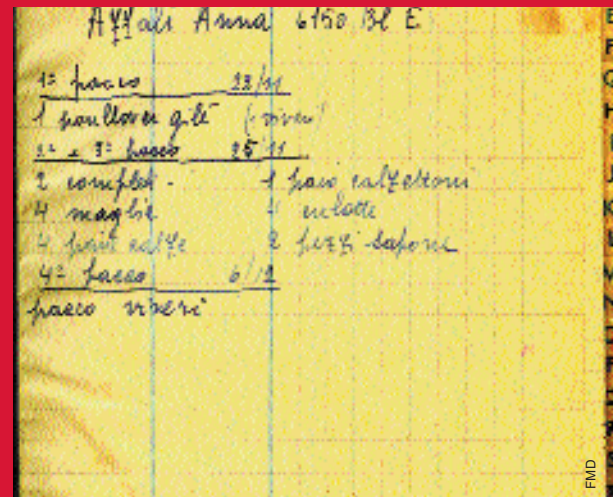 Azzali Anna 6150 Bl E
1° pacco 22/11
1 poullover gilé (viveri)
2° e 3° pacco 25/11
2 complet - 1 paio calzettoni
4 maglie 4 culotte
4 paia calze 2 pezzi sapone
4° pacco 6/12
pacco viveri
FMD